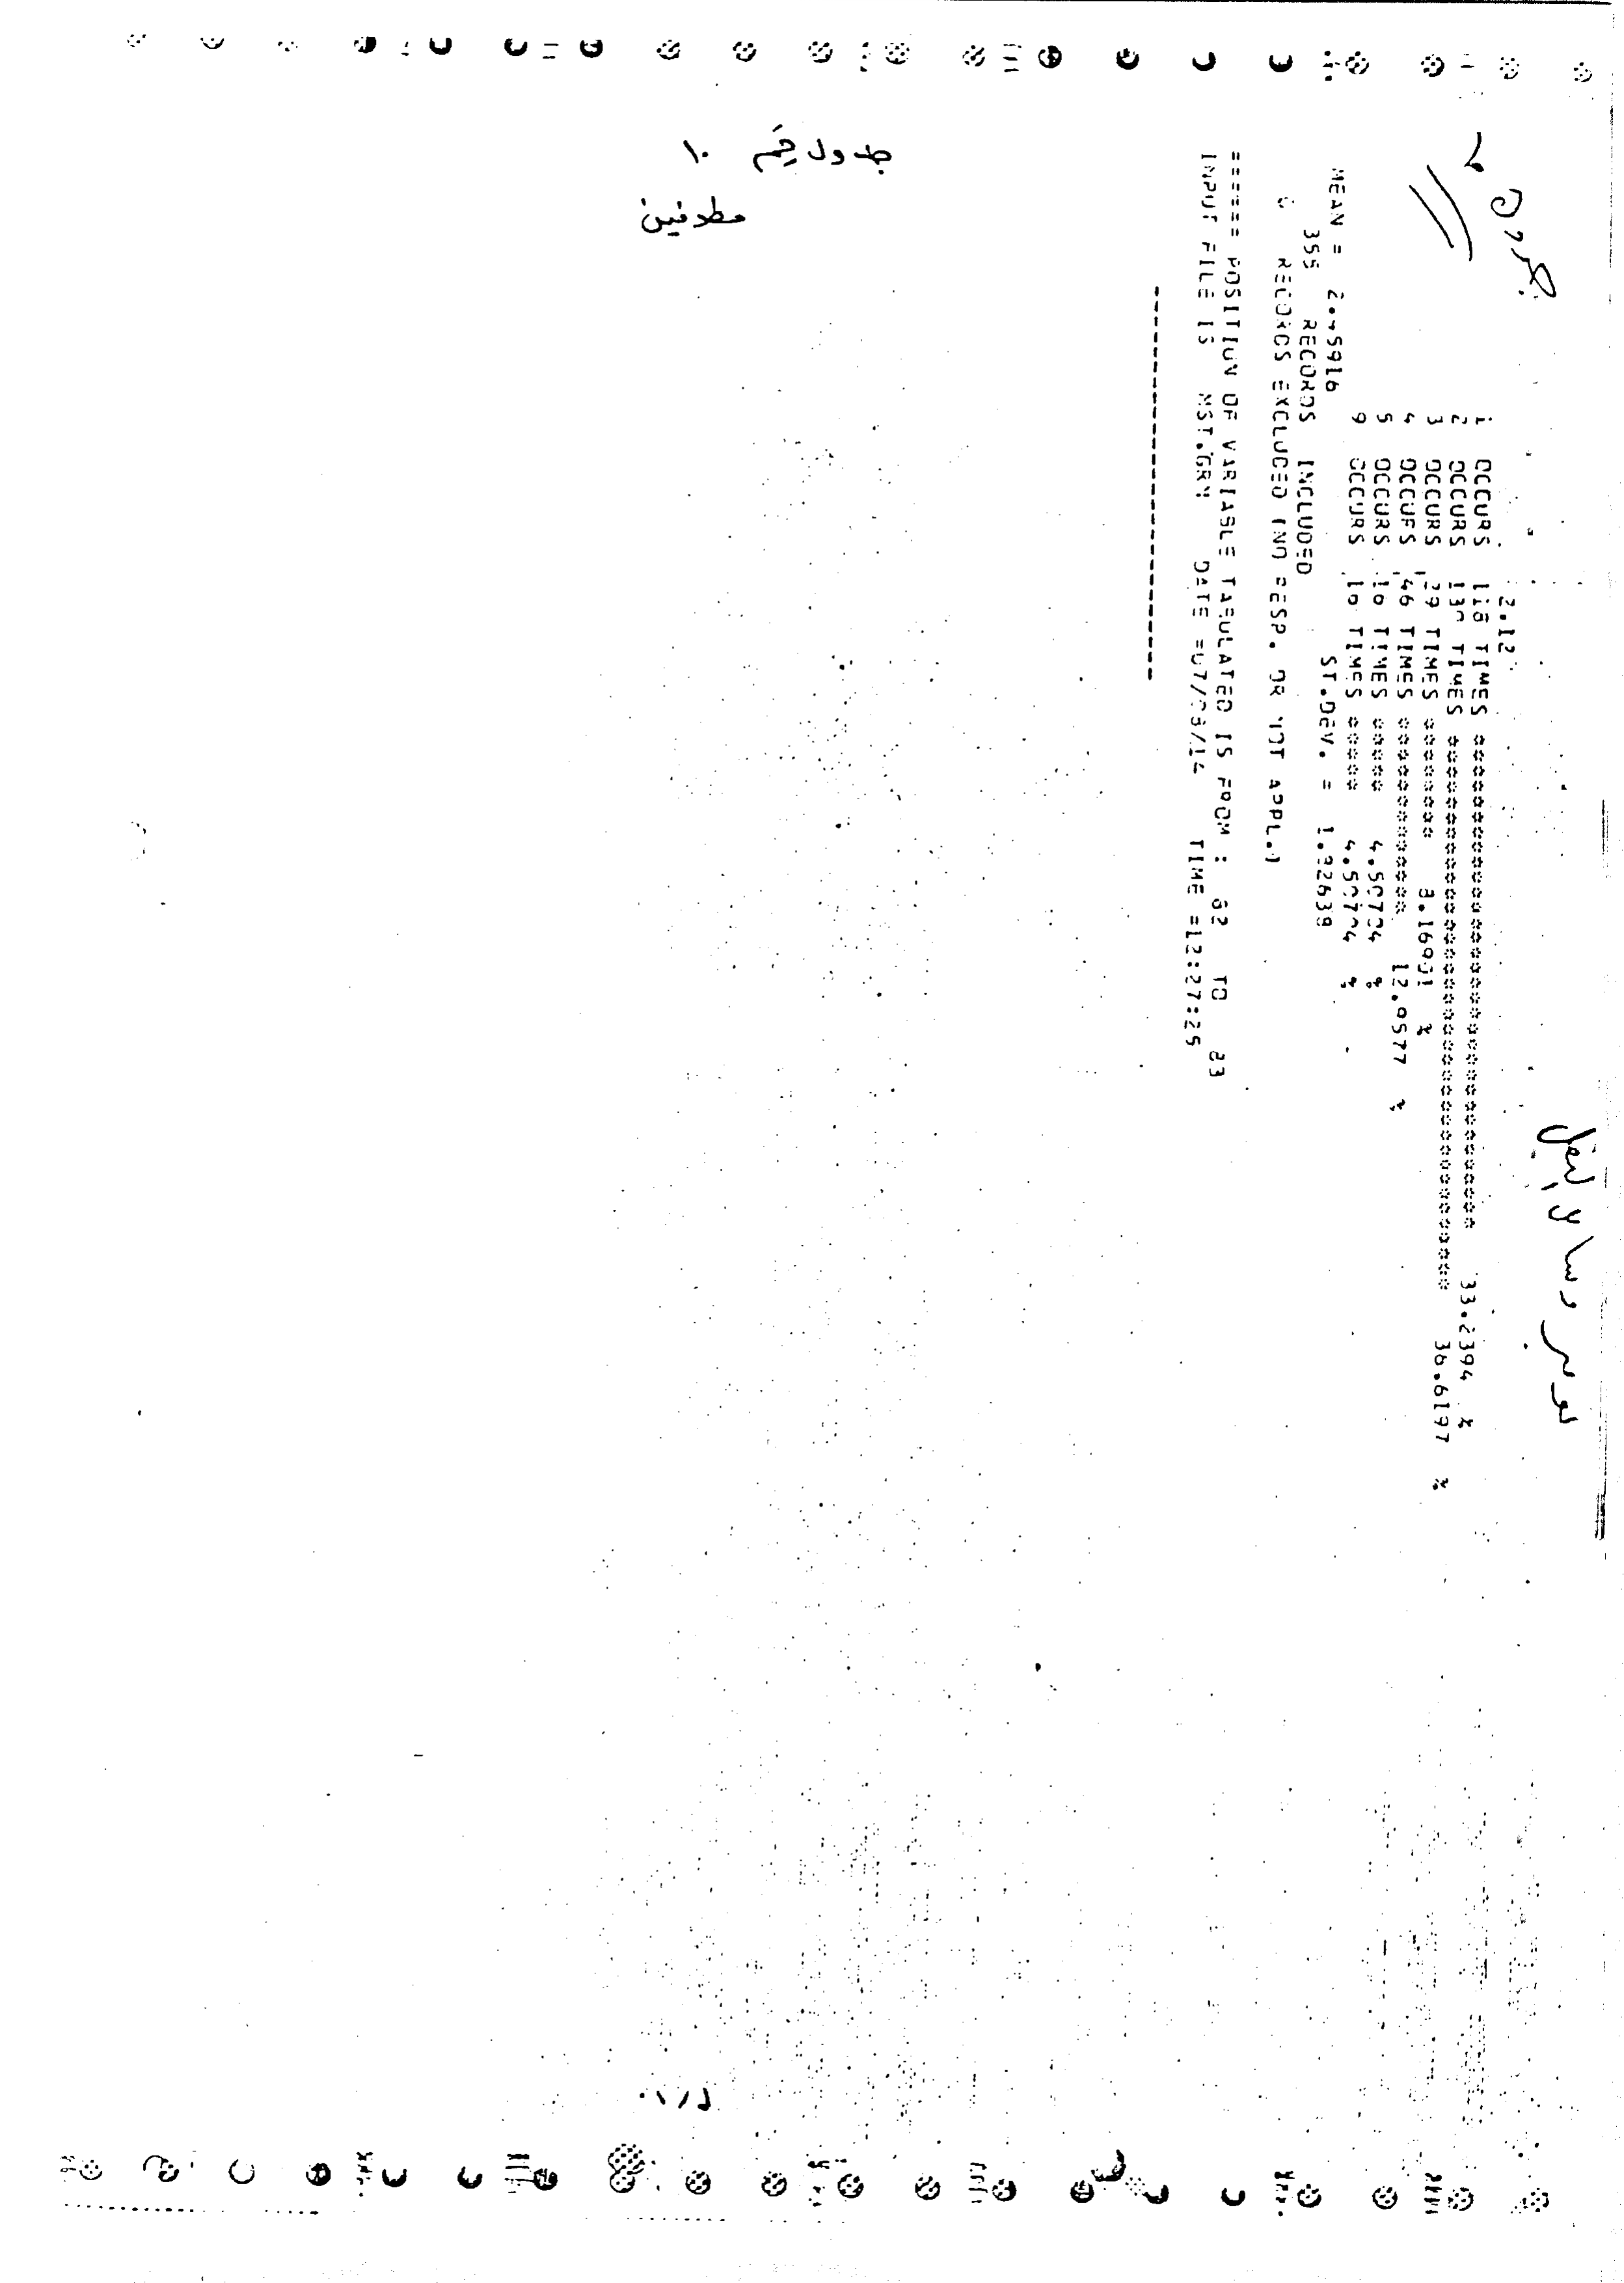 جدول رقم ١٠
موظفين
2.12
1 OCCURS 118 TIMES ******************************************** 33.2394 %
2 OCCURS 130 TIMES ************************************************* 36.6197 %
3 OCCURS 29 TIMES ********** 8.16901 %
4 OCCURS 46 TIMES ***************** 12.9577 %
5 OCCURS 16 TIMES ***** 4.50704 %
9 OCCURS 16 TIMES ***** 4.50704 %
MEAN = 2.45916 ST.DEV. = 1.92639
355 RECORDS INCLUDED
0 RECORDS EXCLUDED (NO RESP. OR NOT APPL.)
====== POSITION OF VARIABLE TABULATED IS FROM : 82 TO 83
INPUT FILE IS MST.GRN TIME =12:27:25
---------------------------------